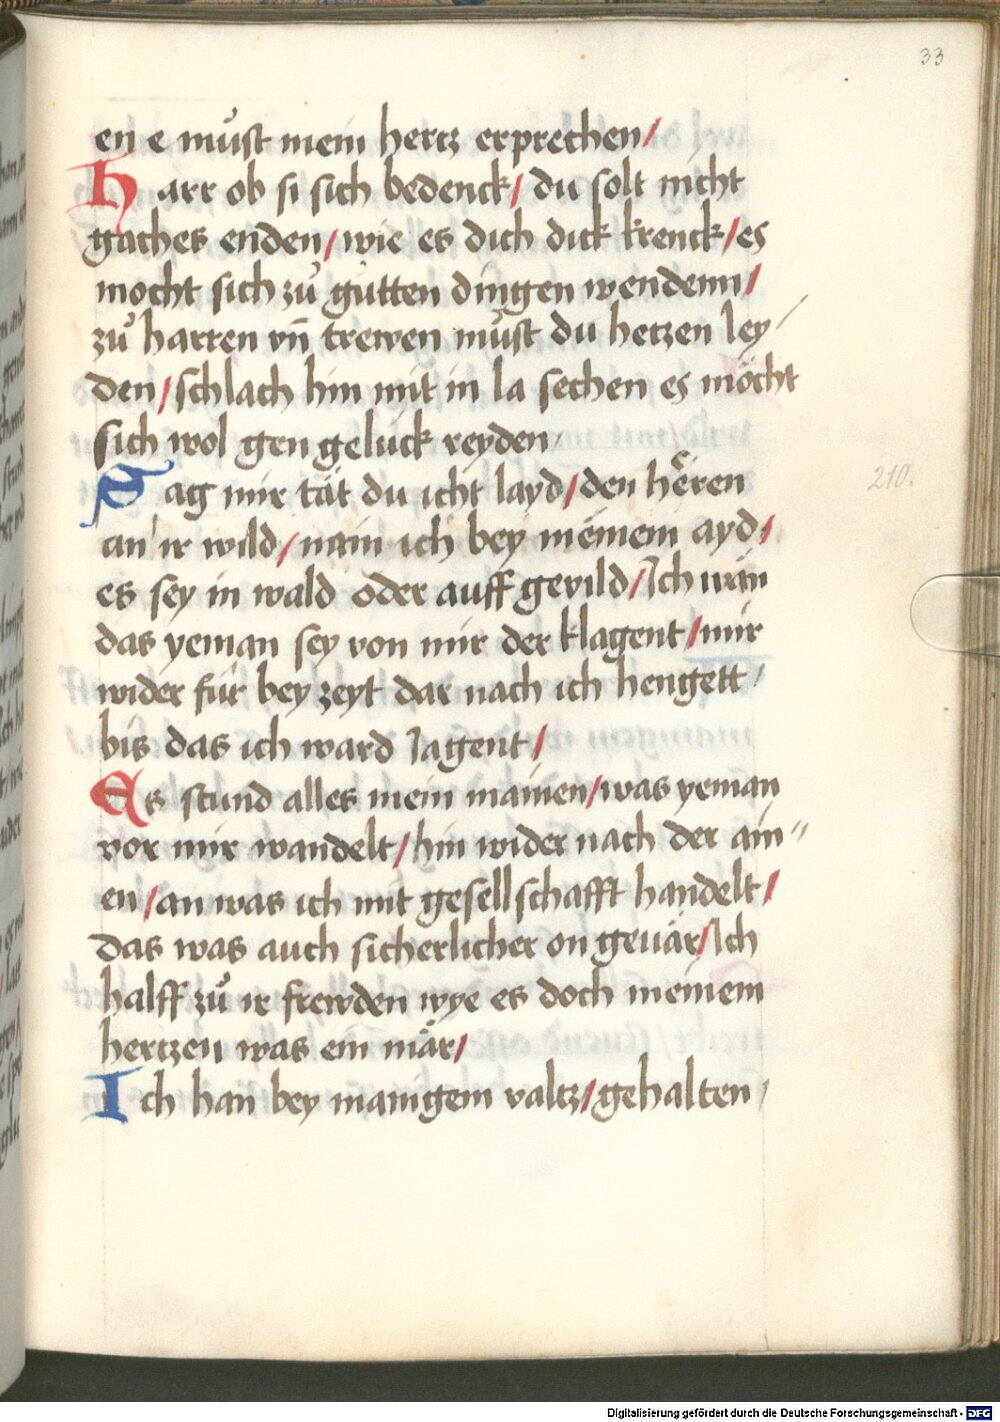 33
en e mu̇st mein hertz erprechen/
Harr ob si sich bedenck/ du solt nicht
gaches enden/ wie es dich dick krenck/ es
mocht sich zů gůtten dingen wendenn/
zů harren vn̄ trewen můst du hertzen ley/
den/ schlach hin mit in la sechen es möcht
sich wol gen geluck reyden/
Sag mir tät du icht layd/ den hëren
an ir wild/ nain ich bey meinem ayd/
es sey in wald oder auff gevild/ Ich wän
das yeman sey von mir der klagent/ mir
wider für bey zeyt dar nach ich hengett/
bis das ich ward Jagent/
Es stund alles mein mainen/ was yeman
vor mir wandelt/ hin wider nach der ain//
en/ an was ich mit gesellschafft handelt/
das was auch sicherlicher on geuär/ Ich
halff zů ir frewden wye es doch meinem
hertzen was ein mär/
Ich han bey manigem valtz/ gehalten/
210.
Digitalisierung gefördert durch die Deutsche Forschungsgemeinschaft - DFG